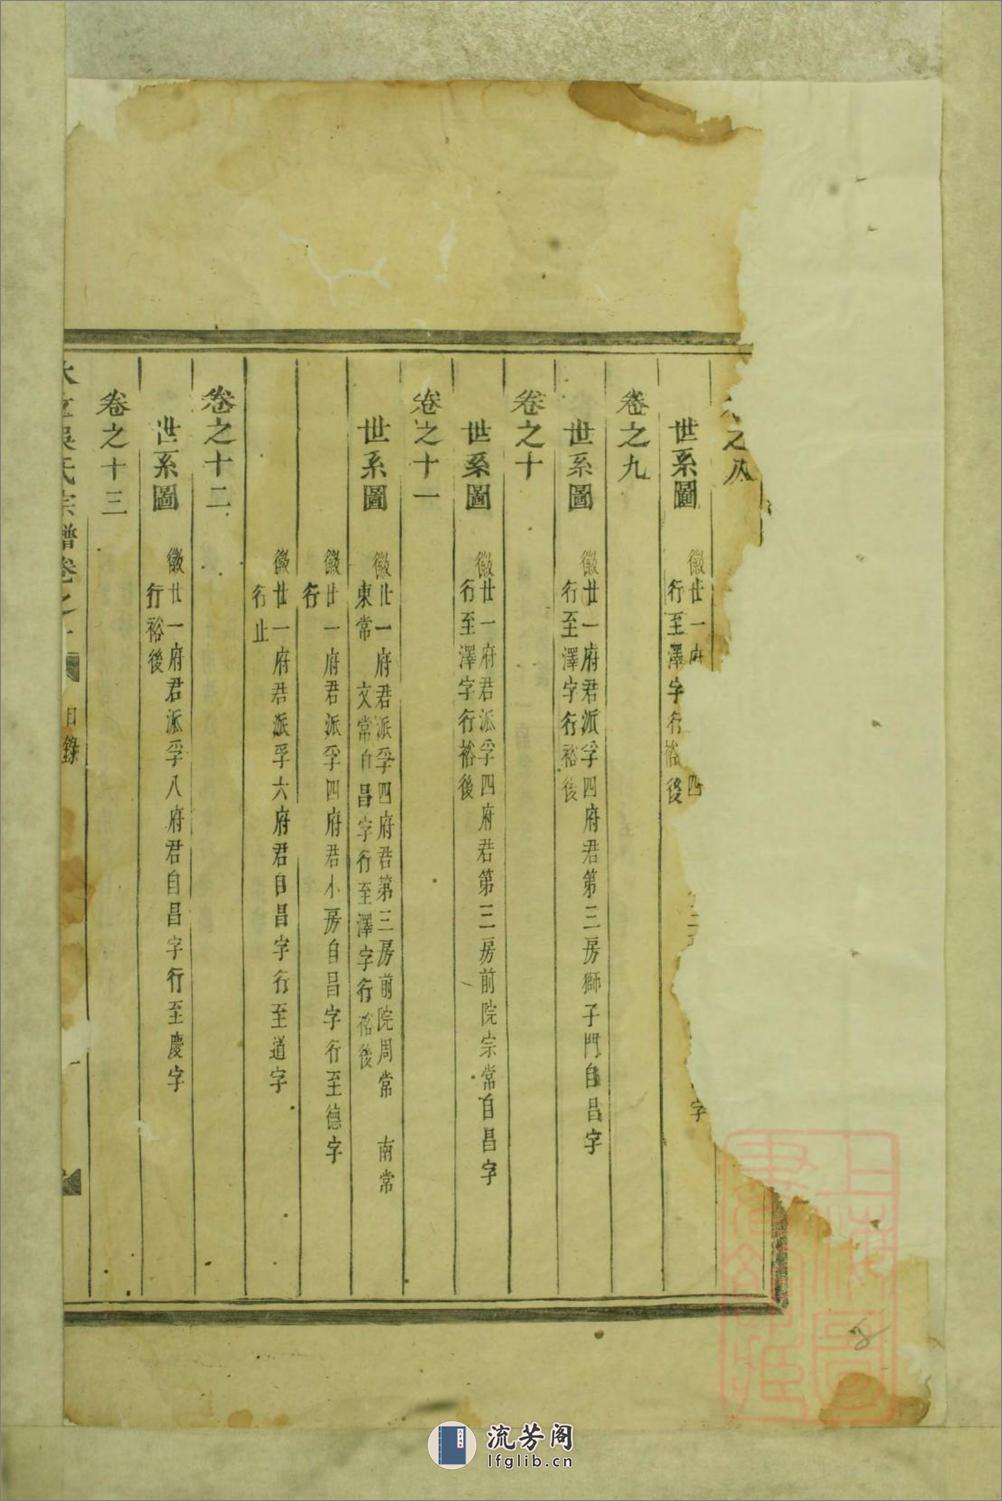 之八
世系圖
徽廿一府 四 字
行至澤字行裕後
卷之九
世系圖
徽廿一府君派孚四府君第三房獅子門自昌字
行至澤字行裕後
卷之十
世系圖
徽廿一府君派孚四府君第三房前院宗常自昌字
行至澤字行裕後
卷之十一
世系圖
徽廿一府君派孚四府君第三房前院周常 南常
東常 文常自昌字行至澤字行裕後
徽廿一府君派孚四府君小房自昌字行至德字
行
徽廿一府君派孚六府君自昌字行至道字
行止
卷之十二
世系圖
徽廿一府君派孚八府君自昌字行至慶字
行裕後
卷之十三
吳氏宗譜卷之 目錄
上海圖書館藏
8
流芳阁
lfglib.cn